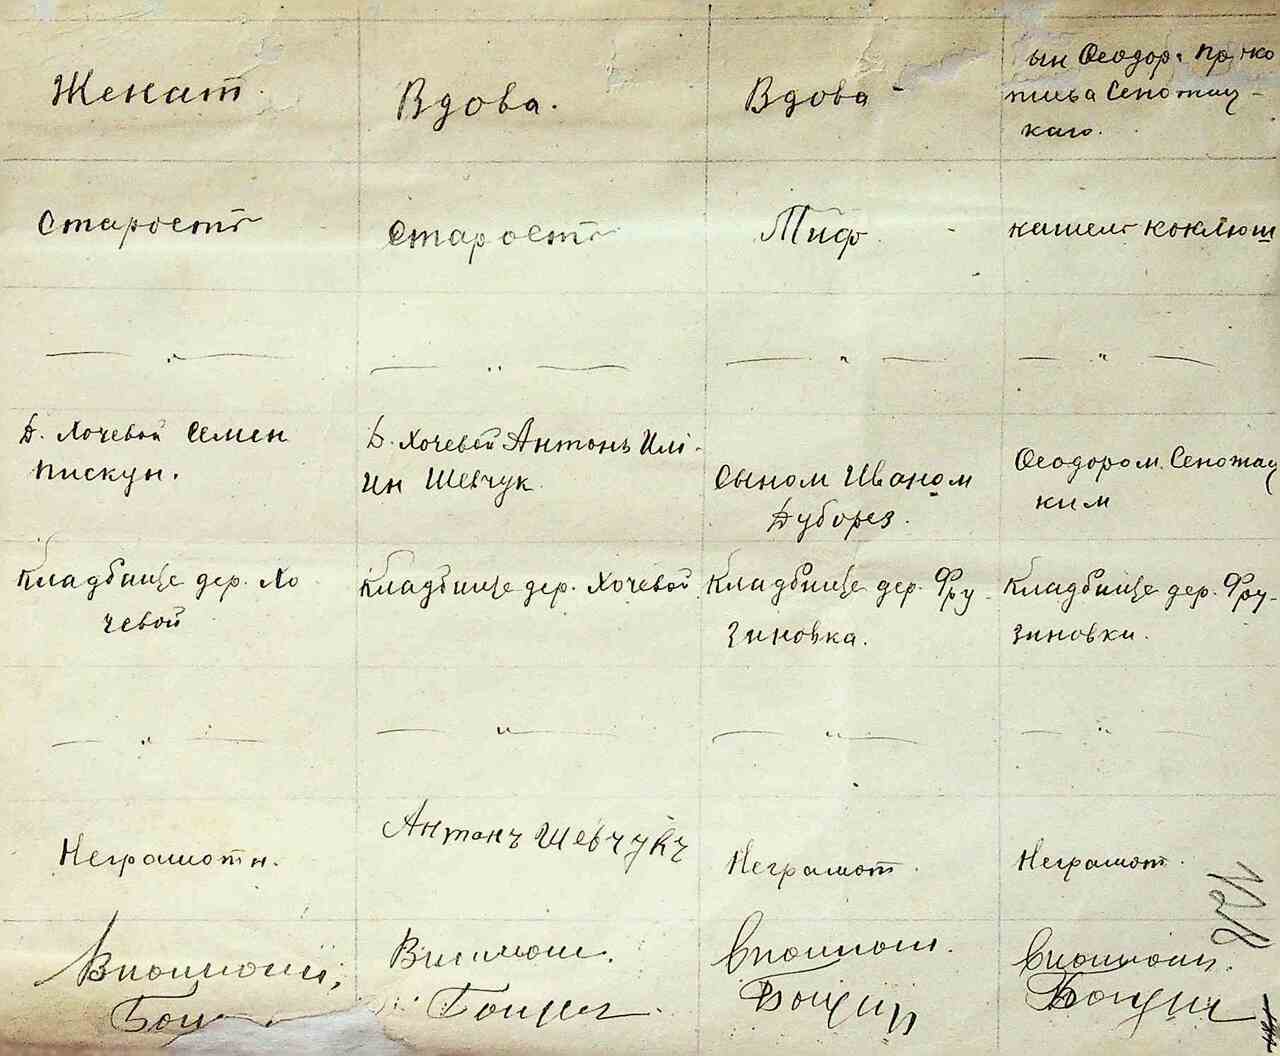 Женат.
Вдова.
Вдова
ын Феодор. Про ко
пиева Сеножац-
каго.
Старость
Старость
Тиф
кашель коклюш
Д. Хочевой Семен
Пискун.
Д. Хочевой Антонъ Иль-
ин Шевчук
Сыном Иваном
Дуборез.
Феодором Сеножац
ким
Кладбище дер. Хо
чевой
Кладбище дер. Хочевой
Кладбище дер. Фру-
зиновка.
Кладбище дер. Фру-
зиновки.
Неграмотн.
Антонъ Шевчукъ
Неграмот.
Неграмот.